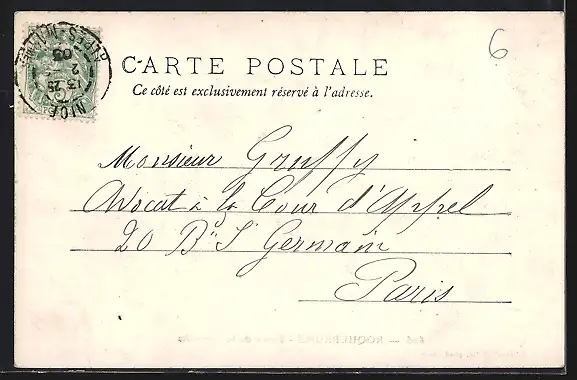 CARTE POSTALE
Ce côté est exclusivement réservé à l'adresse.
6
NICE
Monsieur Gruffy
Avocat à la Cour d'Appel
20 Bd St Germain
Paris